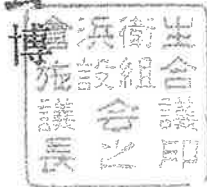 博
倉浜衛生
施設組合
議会議
長之印